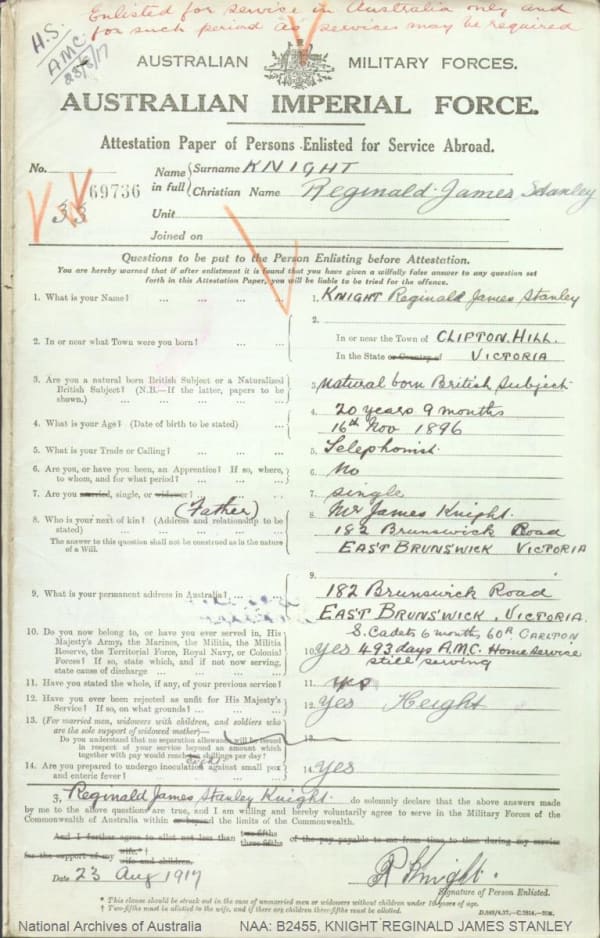 Enlisted for service in Australia only and
for such period as services may be required
H.S.
AMC
23/8/17
AUSTRALIAN MILITARY FORCES.
AUSTRALIAN IMPERIAL FORCE.
Attestation Paper of Persons Enlisted for Service Abroad.
No. 69736
33
Name in full { Surname KNIGHT
Christian Name Reginald James Stanley
Unit
Joined on
Questions to be put to the Person Enlisting before Attestation.
You are hereby warned that if after enlistment it is found that you have given a wilfully false answer to any question set
forth in this Attestation Paper, you will be liable to be tried for the offence.
1. What is your Name? ... ... ... ... 1. KNIGHT Reginald James Stanley
2. In or near what Town were you born? ... ... 2. In or near the Town of CLIFTON HILL.
In the State or Country of VICTORIA
3. Are you a natural born British Subject or a Naturalized
British Subject? (N.B.—If the latter, papers to be
shown.) ... ... ... ... 3. Natural born British Subject
4. What is your Age? (Date of birth to be stated) ... 4. 20 years 9 months
16th Nov 1896
5. What is your Trade or Calling? ... ... ... 5. Telephonist
6. Are you, or have you been, an Apprentice? If so, where,
to whom, and for what period? ... ... ... 6. No
7. Are you married, single, or widower? ... ... 7. single
(Father)
8. Who is your next of kin? (Address and relationship to be
stated) ... ... ... ... 8. Mr James Knight
The answer to this question shall not be construed as in the nature
of a Will. 182 Brunswick Road
EAST BRUNSWICK VICTORIA
9. What is your permanent address in Australia? ... 9. 182 Brunswick Road
EAST BRUNSWICK, VICTORIA.
10. Do you now belong to, or have you ever served in, His
Majesty's Army, the Marines, the Militia, the Militia
Reserve, the Territorial Force, Royal Navy, or Colonial
Forces? If so, state which, and if not now serving,
state cause of discharge ... ... ...
S. Cadets 6 months 60th CARLTON
10. yes 493 days A.M.C. Home service
still serving
11. Have you stated the whole, if any, of your previous service? 11. yes
12. Have you ever been rejected as unfit for His Majesty's
Service? If so, on what grounds? ... ... ... 12. Yes Height
13. (For married men, widowers with children, and soldiers who
are the sole support of widowed mother)—
Do you understand that no separation allowance will be issued
in respect of your service beyond an amount which
together with pay would reach ten shillings per day? 13.
eight
14. Are you prepared to undergo inoculation against small pox
and enteric fever? ... ... ... ... 14. yes
I, Reginald James Stanley Knight do solemnly declare that the above answers made
by me to the above questions are true, and I am willing and hereby voluntarily agree to serve in the Military Forces of the
Commonwealth of Australia within or beyond the limits of the Commonwealth.
And I further agree to allot not less than two-fifths three-fifths of the pay payable to me from time to time during my service
for the support of my wife.* wife and children.
Date 23 Aug 1917
R Knight.
Signature of Person Enlisted.
* This clause should be struck out in the case of unmarried men or widowers without children under 18 years of age.
† Two-fifths must be allotted to the wife, and if there are children three-fifths must be allotted.
National Archives of Australia NAA: B2455, KNIGHT REGINALD JAMES STANLEY